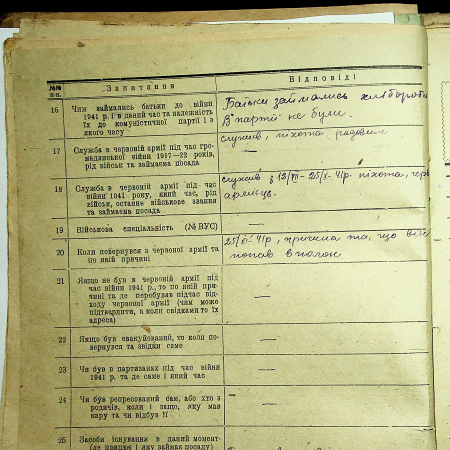 №№ п.п.
Запитання
Відповіді
16
Чим займались батьки до війни
1941 р. і в даний час та належність
їх до комуністичної партії і з
якого часу
Батьки займались хліборобс
В партії не були.
17
Служба в червоній армії під час гро-
мадянської війни 1917—22 років,
рід військ та займаєма посада
служив, піхота рядовим
—
18
Служба в червоній армії під час
війни 1941 року, який час, рід
військ, останнє військове звання
та займаєма посада
служив з 13/VII - 25/X - 41р. піхота, черв
армієць.
19
Військова спеціальність (№ ВУС)
—
20
Коли повернувся з червоної армії та
по якій причині
25/XI - 41р, причина та, що він
попав в полон
21
Якщо не був в червоній армії під
час війни 1941 р., то по якій при-
чині та де перебував підчас від-
ходу червоної армії (чим може
підтвердити, а коли свідками то їх
адреса)
—
22
Якщо був евакуйований, то коли по-
вернувся та звідки саме
—
23
Чи був в партизанах під час війни
1941 р. та де саме і який час
—
24
Чи був репресований сам, або хто з
родичів, коли і защо, яку мав
кару та чи відбув її
—
25
Засоби існування в даний момент
(де працює і яку займає посаду)